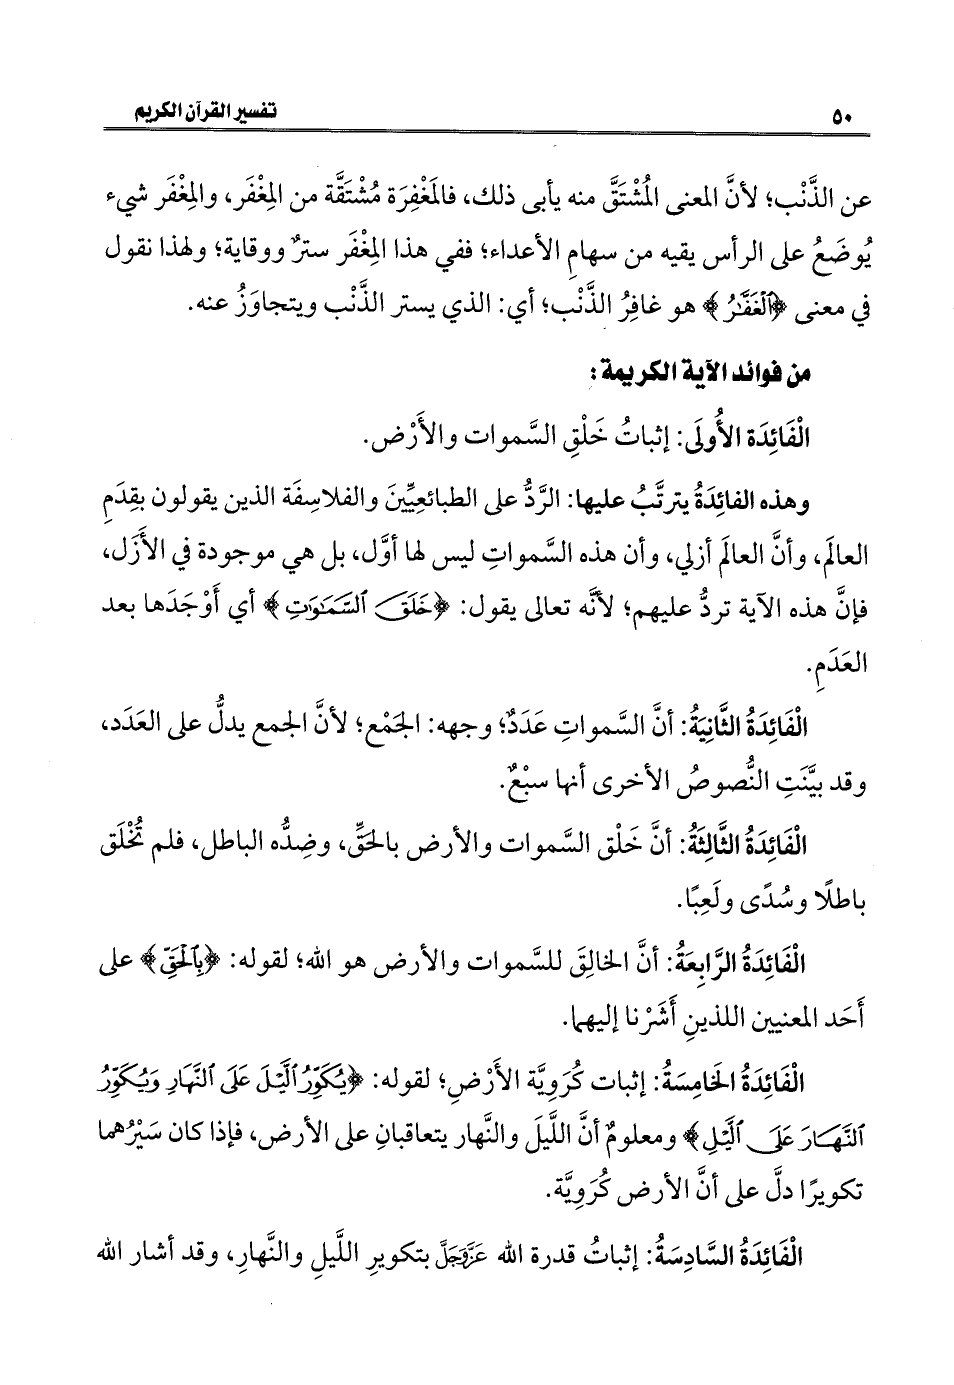 ٥٠ تفسير القرآن الكريم
عن الذَّنْب؛ لأنَّ المعنى المُشْتَقَّ منه يأبى ذلك، فالمَغْفِرَة مُشْتَقَّة من المِغْفَر، والمِغْفَر شيء
يُوضَعُ على الرأس يقيه من سهامِ الأعداء؛ ففي هذا المِغْفَر سترٌ ووقاية؛ ولهذا نقول
في معنى ﴿ٱلْغَفَّٰرُ﴾ هو غافِرُ الذَّنْب؛ أي: الذي يستر الذَّنْب ويتجاوَزُ عنه.
من فوائد الآية الكريمة:
الْفَائِدَة الأُولَى: إثباتُ خَلْقِ السَّموات والأَرْض.
وهذه الفائِدَةُ يترتَّبُ عليها: الرَّدُّ على الطبائعِيِّينَ والفلاسِفَة الذين يقولون بقِدَمِ
العالَم، وأنَّ العالَم أزلي، وأن هذه السَّمواتِ ليس لها أوَّل، بل هي موجودة في الأزَل،
فإنَّ هذه الآية تردُّ عليهم؛ لأنَّه تعالى يقول: ﴿خَلَقَ ٱلسَّمَٰوَٰتِ﴾ أي أَوْجَدَها بعد
العَدَمِ.
الْفَائِدَةُ الثَّانِيَةُ: أنَّ السَّمواتِ عَدَدٌ؛ وجهه: الجَمْع؛ لأنَّ الجمع يدلُّ على العَدَد،
وقد بيَّنَتِ النُّصوصُ الأخرى أنها سبْعٌ.
الْفَائِدَةُ الثَّالِثَةُ: أنَّ خَلْق السَّموات والأرض بالحَقِّ، وضِدُّه الباطل، فلم تُخْلَق
باطلًا وسُدًى ولَعِبًا.
الْفَائِدَةُ الرَّابِعَةُ: أنَّ الخالِقَ للسَّموات والأرض هو الله؛ لقوله: ﴿بِٱلْحَقِّ﴾ على
أَحَد المعنيين اللذينِ أَشَرْنا إليهما.
الْفَائِدَةُ الخَامِسَةُ: إثبات كُرَوِيَّة الأَرْضِ؛ لقوله: ﴿يُكَوِّرُ ٱلَّيْلَ عَلَى ٱلنَّهَارِ وَيُكَوِّرُ
ٱلنَّهَارَ عَلَى ٱلَّيْلِ﴾ ومعلومٌ أنَّ اللَّيلَ والنَّهار يتعاقبانِ على الأرض، فإذا كان سَيْرُهما
تكويرًا دلَّ على أنَّ الأرض كُرَوِيَّة.
الْفَائِدَةُ السَّادِسَةُ: إثباتُ قدرة الله عَزَّوَجَلَّ بتكويرِ اللَّيلِ والنَّهارِ، وقد أشار الله